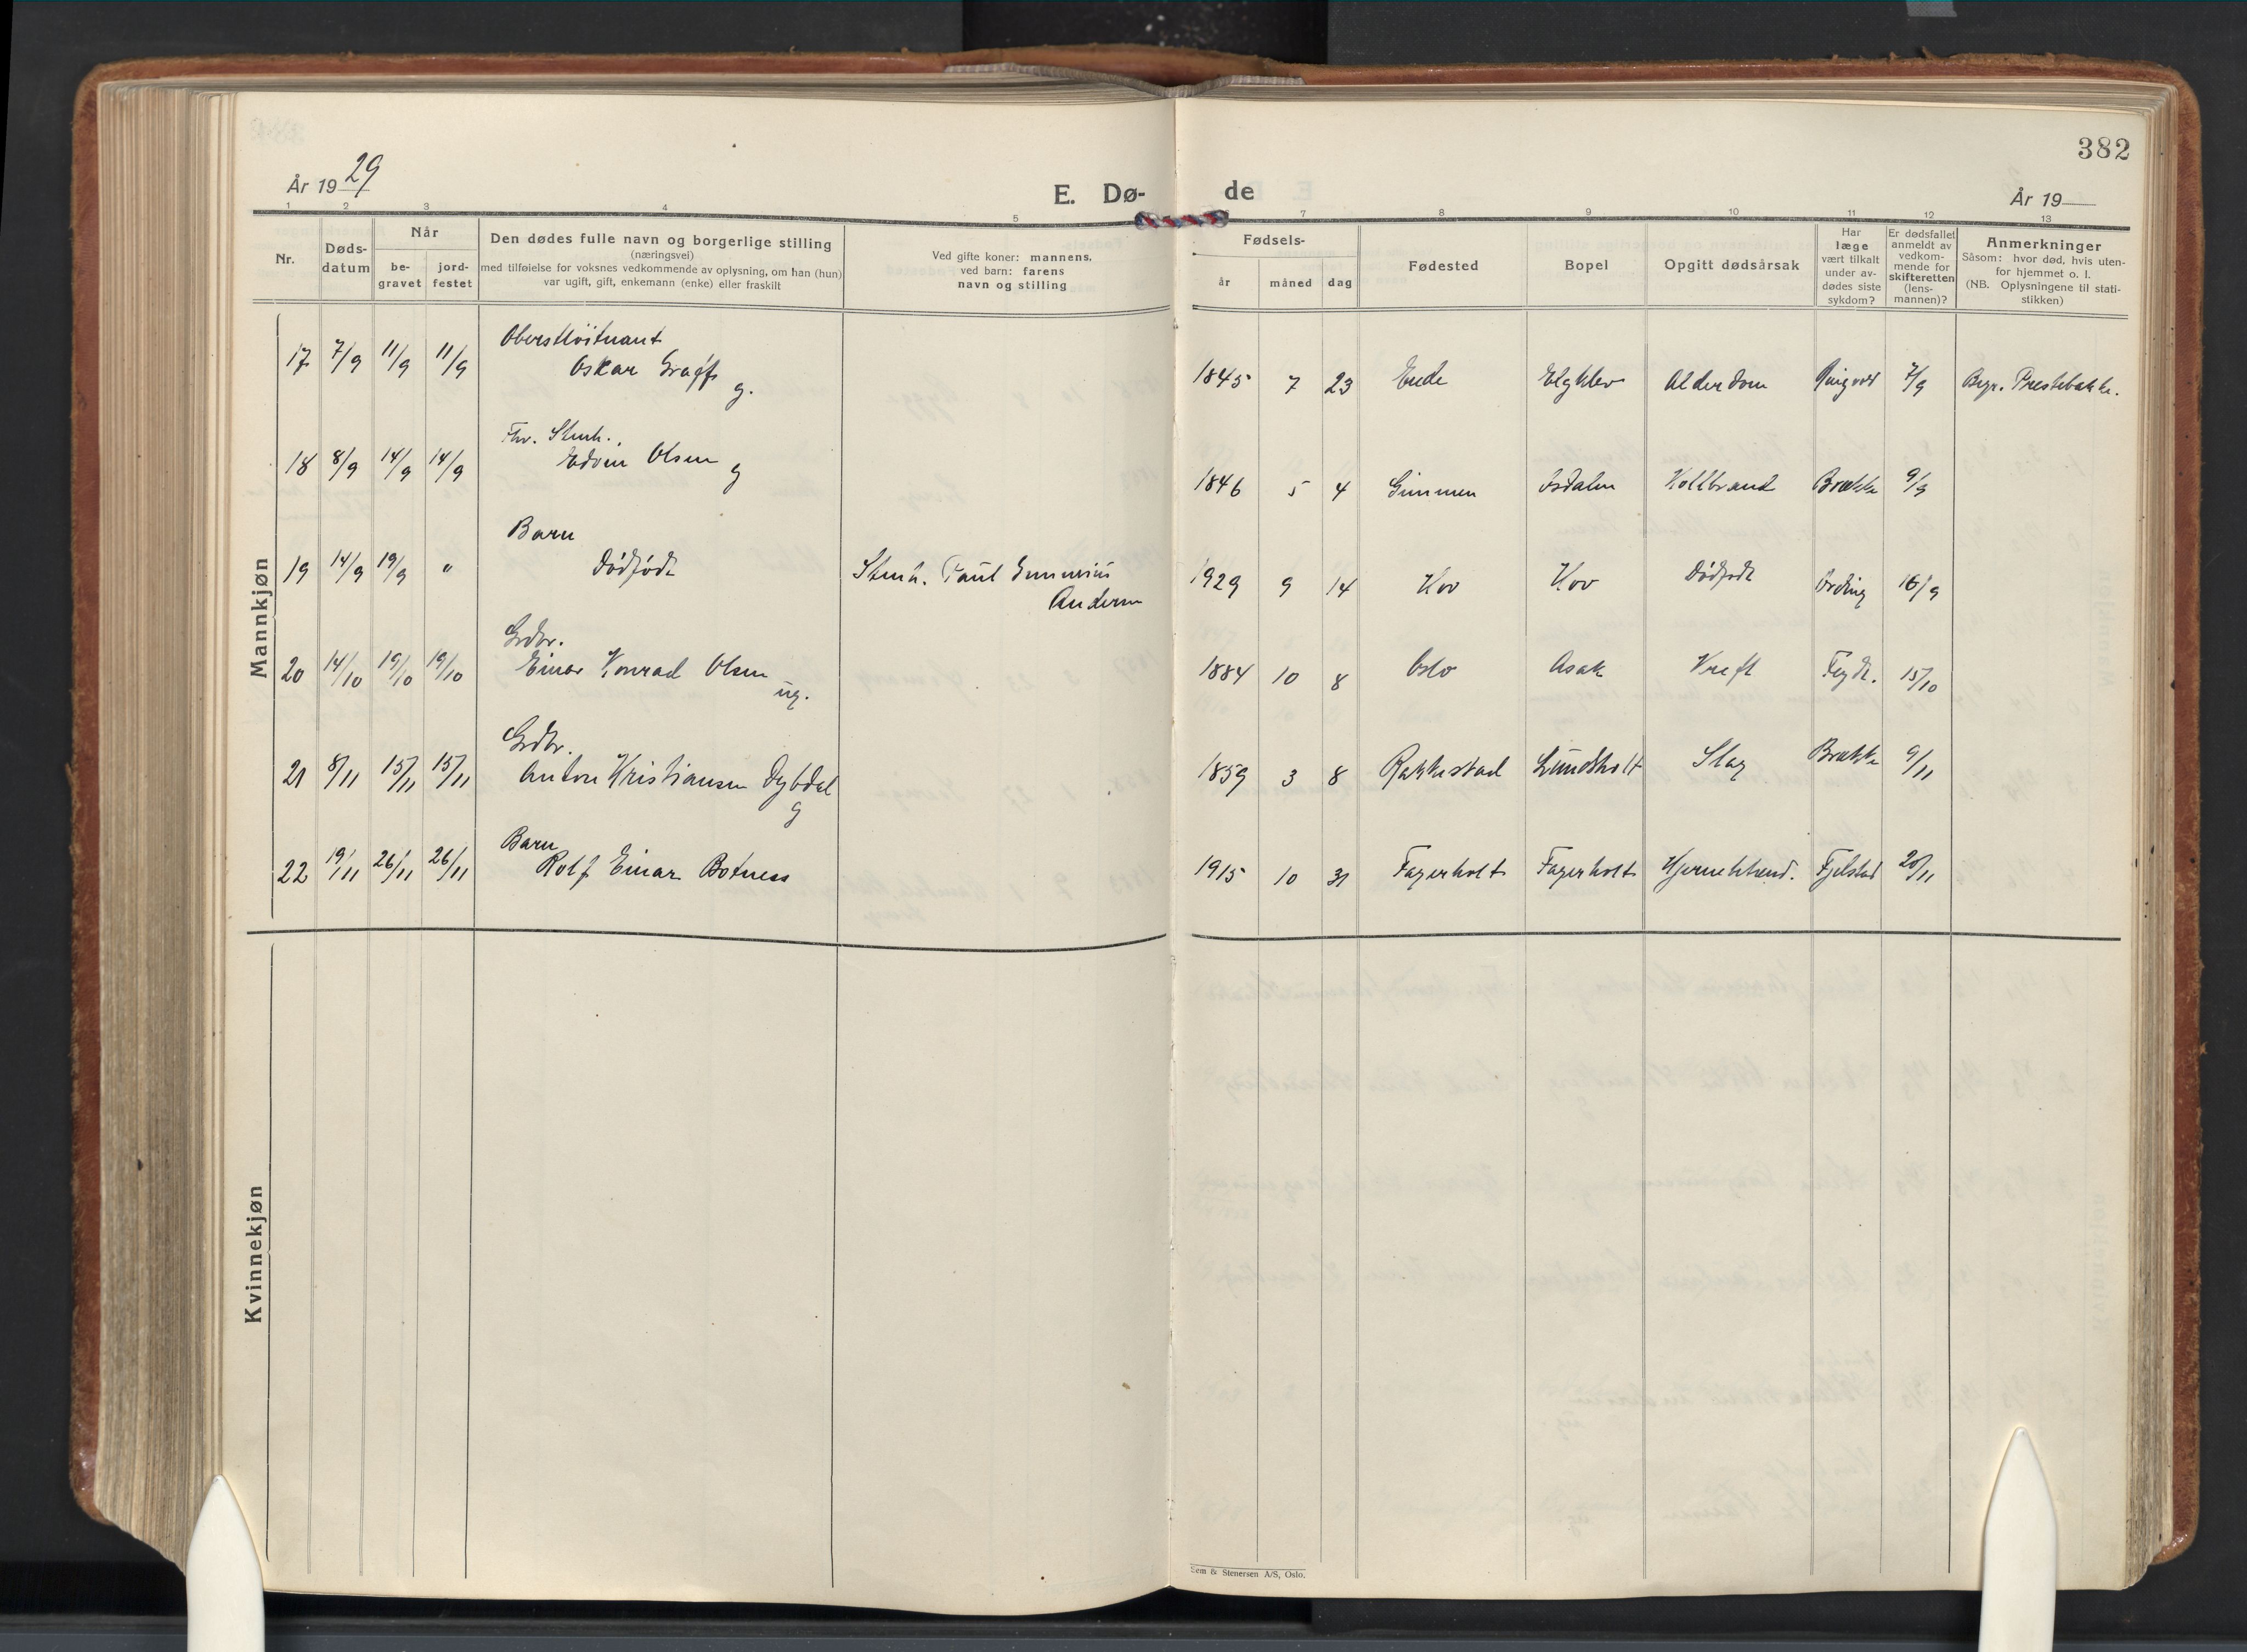 382
År 19 29
E. Dø-
de
År 19
1 2 3 4 5 6 7 8 9 10 11 12 13
Nr.
Døds-
datum
Når
be-
gravet
jord-
festet
Den dødes fulle navn og borgerlige stilling
(næringsvei)
med tilføielse for voksnes vedkommende av oplysning, om han (hun)
var ugift, gift, enkemann (enke) eller fraskilt
Ved gifte koner: mannens,
ved barn: farens
navn og stilling
Fødsels-
år
måned
dag
Fødested
Bopel
Opgitt dødsårsak
Har
læge
vært tilkalt
under av-
dødes siste
sykdom?
Er dødsfallet
anmeldt av
vedkom-
mende for
skifteretten
(lens-
mannen)?
Anmerkninger
Såsom: hvor død, hvis uten-
for hjemmet o. l.
(NB. Oplysningene til stati-
stikken)
Mannkjøn
Oberstløitnant
17 7/9 11/9 11/9 Oskar Gräff g. 1845 7 23 Ende Elgklev Alderdom Ringvold 7/9 Begr. Prestebakke.
Fhv. Stenh.
18 8/9 14/9 14/9 Edvin Olsen g 1846 5 4 Gimmen Isdalen Kollbrand Brække 9/9
Barn
19 14/9 19/9 " Dødfødt Stenh. Paul Gunerius 1929 9 14 Hov Hov Dødfødt Ording 16/9
Andersen
Grdbr.
20 14/10 19/10 19/10 Einar Konrad Olsen ug. 1884 10 8 Oslo Asak Kreft Feydt. 15/10
Grdbr.
21 8/11 15/11 15/11 Anton Kristiansen Dybdal 1859 3 8 Rakkestad Lundholt Slag Brække 9/11
g
Barn
22 19/11 26/11 26/11 Rolf Einar Botness 1915 10 31 Fagerholt Fagerholt Hjernehhend. Fjelstad 20/11
Kvinnekjøn
Sem & Stenersen A/S, Oslo.